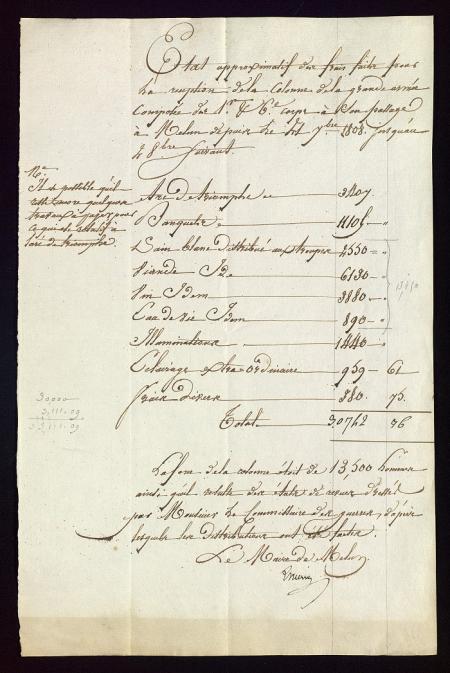 Etat approximatif des frais faits pour
la reception de la Colonne de la grande armée
Composée des 1.er & 6.e corps à son passage
à Melun depuis le 7.bre 1808 jusqu'au
8.bre suivant.
N.a
Il est possible qu'il
reste encore quelques
travaux à payer pour
ce qui est relatif à
l'arc de triomphe.
Arc de triomphe 3407 "
Banquets 11108 "
Pain blanc distribué aux troupes 2550 "
Viande Idem 6130 "
Vin Idem 3880 "
Eau de vie Idem 890 "
Illuminations 1440 "
Eclairage extraordinaire 959 61
frais divers 380 75
Total 30742 36
30000
3,111.09
33,111.09
La force de la colonne étoit de 13,500 hommes
ainsi qu'il resulte des états de revue dressés
par Monsieur le Commissaire des guerres, d'après
lesquels les distributions ont été faites.
Le Maire de Melun